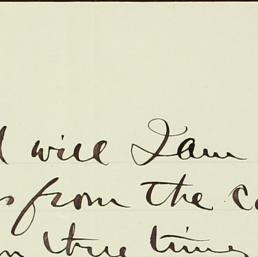 will I am
from the
true time